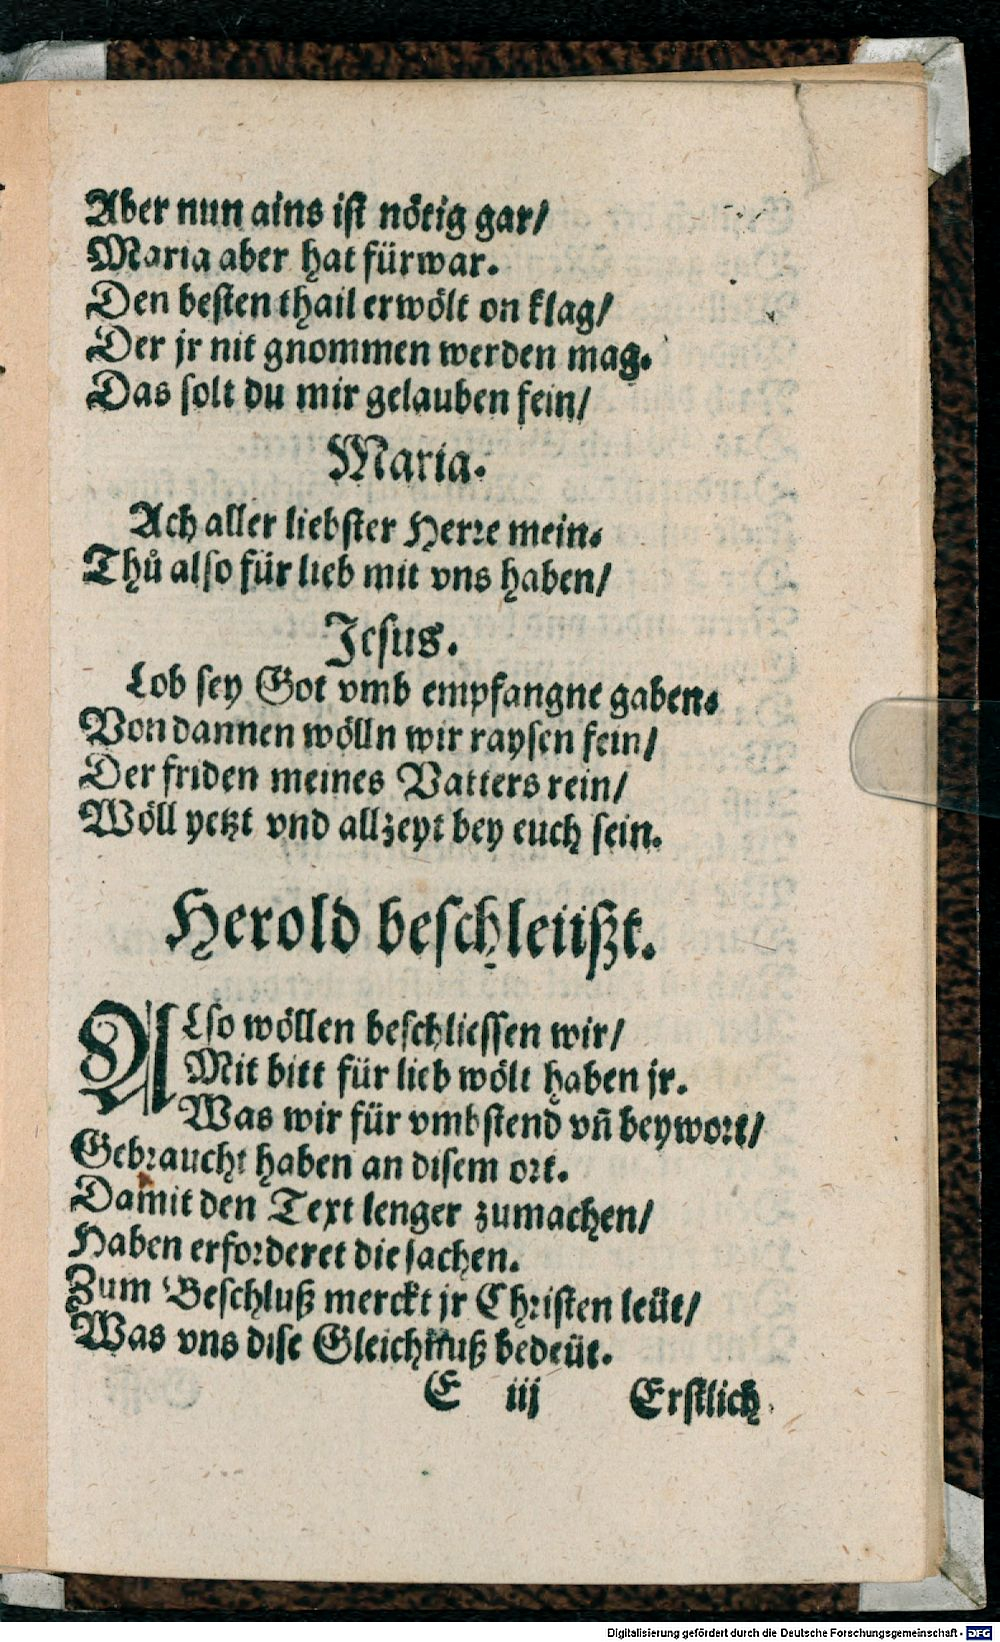 Aber nun ains ist nötig gar/
Maria aber hat fürwar.
Den besten thail erwölt on klag/
Der jr nit gnommen werden mag.
Das solt du mir gelauben fein/
Maria.
Ach aller liebster Herre mein.
Thů also für lieb mit vns haben/
Jesus.
Lob sey Got vmb empfangne gaben.
Von dannen wölln wir raysen fein/
Der friden meines Vatters rein/
Wöll yetzt vnd allzeyt bey euch sein.
Herold beschleüßt.
ALso wöllen beschliessen wir/
Mit bitt für lieb wölt haben jr.
Was wir für vmbstend vn̄ beywort/
Gebraucht haben an disem ort.
Damit den Text lenger zumachen/
Haben erforderet die sachen.
Zum Beschluß merckt jr Christen leüt/
Was vns dise Gleichnuß bedeüt.
E iij Erstlich
Digitalisierung gefördert durch die Deutsche Forschungsgemeinschaft - DFG